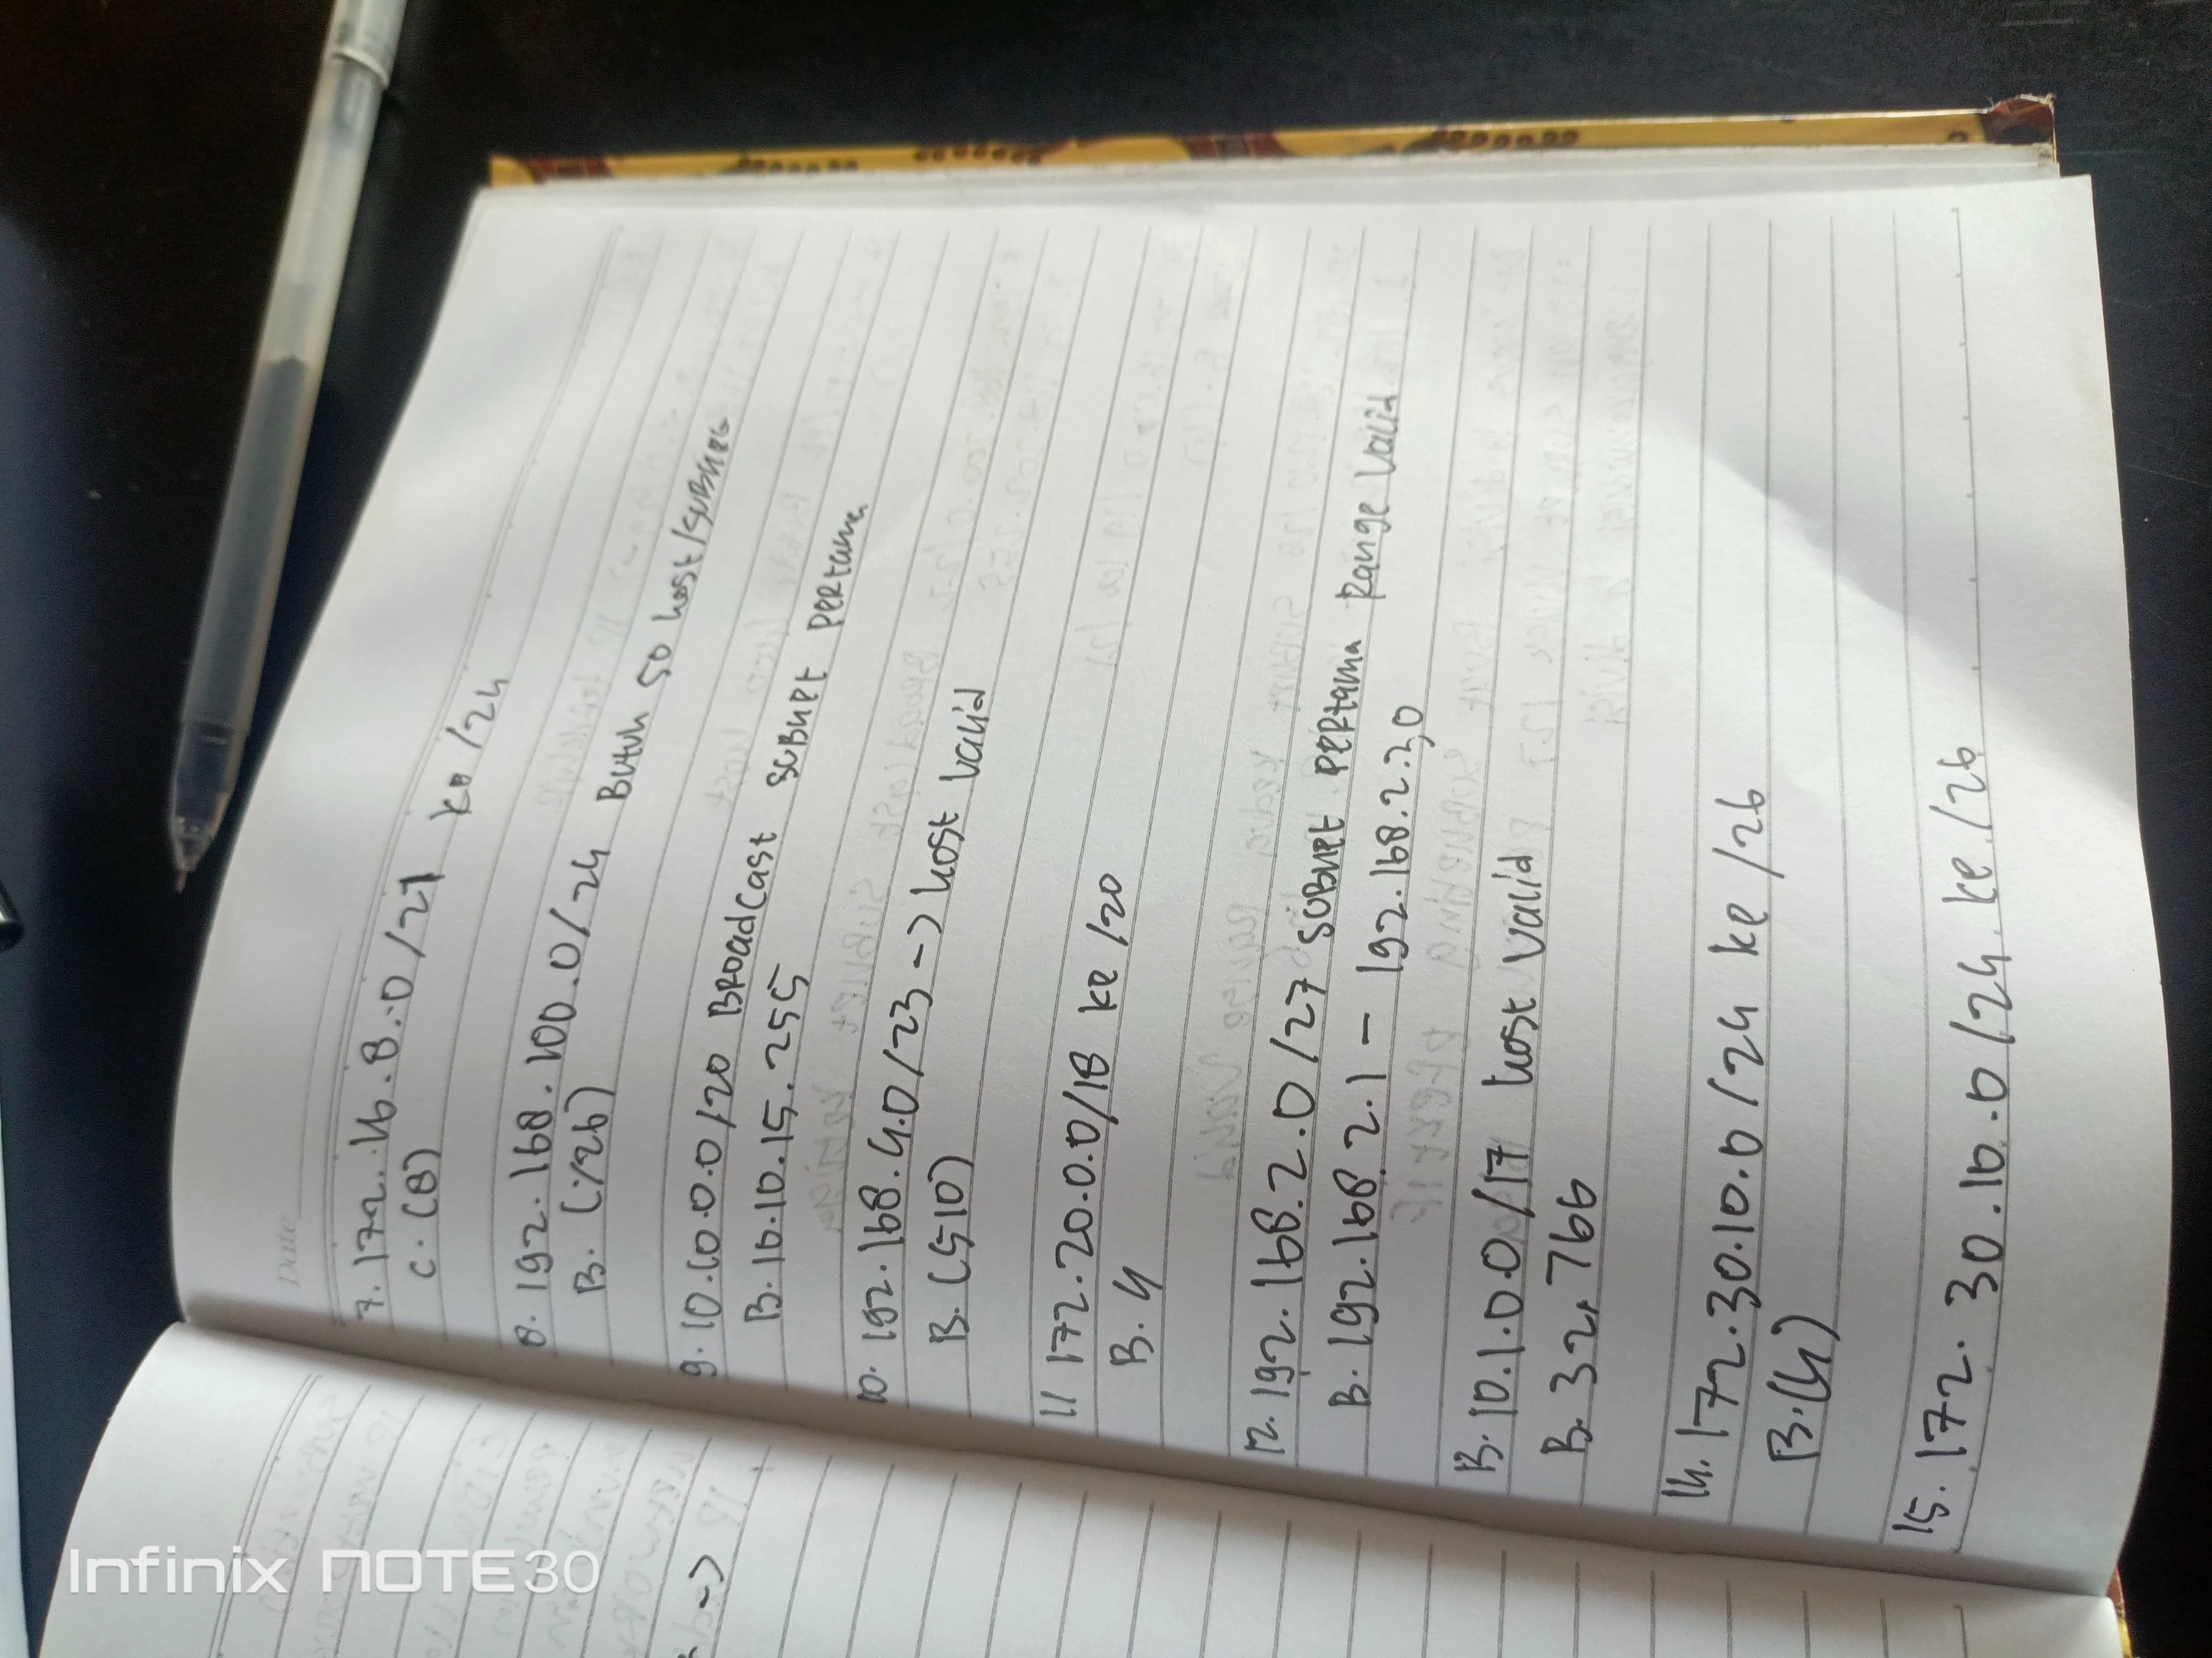 Date
7. 172.16.8.0/21 ke /24
C. (8)
8. 192.168.100.0/24 Butuh 50 host/subnet
B. (/26)
9. 10.10.0.0/20 Broadcast subnet pertama
B. 10.10.15.255
10. 192.168.4.0/23 -> host valid
B. (510)
11 172.20.0.0/18 ke /20
B. 4
12. 192.168.2.0/27 subnet pertama Range valid
B. 192.168.2.1 - 192.168.2.30
13. 10.1.0.0/17 host valid
B. 32,766
14. 172.30.10.0/24 ke /26
B. (4)
15. 172.30.10.0/24 ke /26
->
Infinix NOTE 30